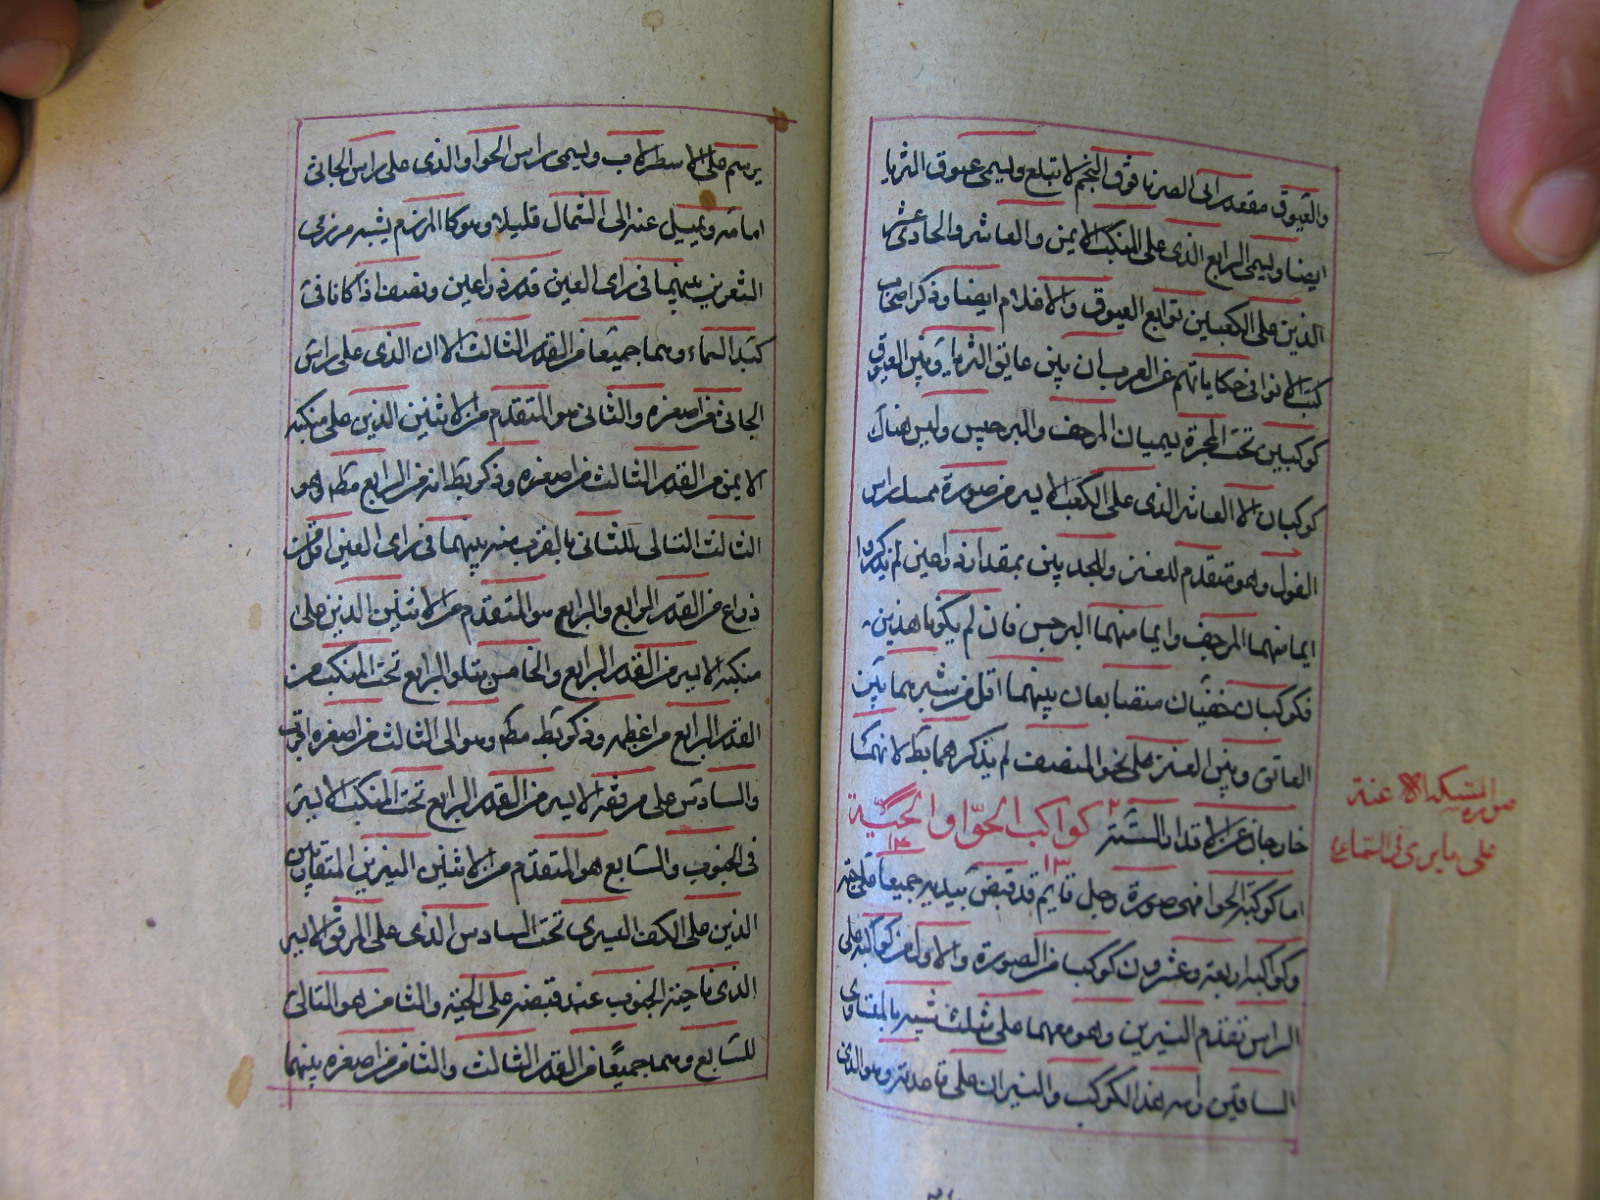 والعيوق مقعد رابى الضربا فوق النجم لا تبلع ويسمى عيوق الثريا
ايضا ويسمى الرابع الذى على المنكب الايمن والعاشر والحادى عشر
الذين على الكعبين توابع العيوق والاعلام ايضا وذكر اصحاب
كتب الانوا فى حكاياتهم عن العرب ان بين عاتق الثريا وبين العيوق
كوكبين تحت المجرة يسميان المرجف والبرجيس وليس هناك
كوكبان الا العاشر الذى على الكعب الايسر من صورة ممسك راس
الغول وهو متقدم للعنز والجديين بمقدار ذراعين لم يذكروا
ايما منهما المرجف وايما منهما البرجيس فان لم يكونا هذين
فكوكبان خفيان متضايقان بينهما اقل من شبر هما بين
العاتق وبين العنز على نحو المنتصف لم يذكرهما بط لانهما
خارجان عن الاقدار الستة كواكب الحوّا والحيّة
اما كوكبة الحوا فهى صورة رجل قايم قد قبض بيديه جميعا على حية
وكواكبه اربعة وعشرون كوكبا من الصورة والاول من كواكبه على
الراس تقدم النيرين وهو معهما على مثلث شبيه بالمتساوى
الساقين راسه هذا الكوكب والنيران على قاعدته وهو الذى
صورة ممسك الاعنة
على ما يرى فى السماء
يرسم على الاسطرلاب ويسمى راس الحوا والذى على راس الجاثى
امامه ويميل عنه الى الشمال قليلا وهو كالمرزم يشبه مرزمى
الشعريين بينهما فى راى العين قدر ذراعين ونصف اذا كانا فى
كبد السماء وهما جميعا من القدر الثالث الا ان الذى على راس
الجاثى من اصغره والثانى هو المتقدم من الاثنين الذين على منكبه
الايمن من القدر الثالث من اصغره وذكر بط انه من الرابع مطلقا وهو
الثالث التالى للثانى بالقرب منه بينهما فى راى العين اقل من
ذراع من القدر الرابع والرابع هو المتقدم من الاثنين الذين على
منكبه الايسر من القدر الرابع والخامس يتلو الرابع تحت المنكب من
القدر الرابع من اعظمه وذكر بط مطلقا وهو الى الثالث من اصغره اقرب
والسادس على مرفقه الايسر من القدر الرابع تحت المنكب الايسر
فى الجنوب والسابع هو المتقدم من الاثنين النيرين المتقاربين
الذين على الكف اليسرى تحت السادس الذى على المرفق الايسر
الذى ناحية الجنوب عند قبضه على الحية والثامن هو التالى
للسابع وهما جميعًا من القدر الثالث والثامن من اصغره بينهما